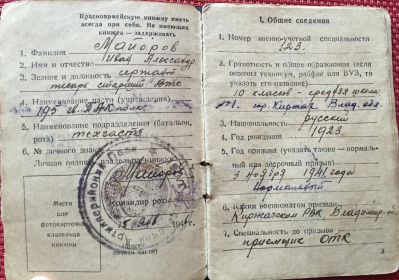 Красноармейскую книжку иметь
всегда при себе. Не имеющих
книжек — задерживать
1. Фамилия Майоров
2. Имя и отчество Александр
3. Звание и должность сержант
писарь старший
4. Наименование части (учреждения)
195
5. Наименование подразделения (батальон,
рота)
6. № личного знака
Личная подпись
Майоров
Командир роты
Место
для
фотокарточки
владельца
книжки
I. Общие сведения
1. Номер военно-учетной специальности
123.
2. Грамотность и общее образование (если
окончил техникум, рабфак или ВУЗ, то
указать его название)
10 классов - средняя школа
№1. Киржач Влад. обл.
3. Национальность русский
4. Год рождения 1923
5. Год призыва (указать также — нормаль-
ный или досрочный призыв)
3 ноября 1941 года
нормальный
6. Каким военкоматом призван
Киржачским РВК Владимир.
7. Специальность до призыва
приемщик ОТК
3